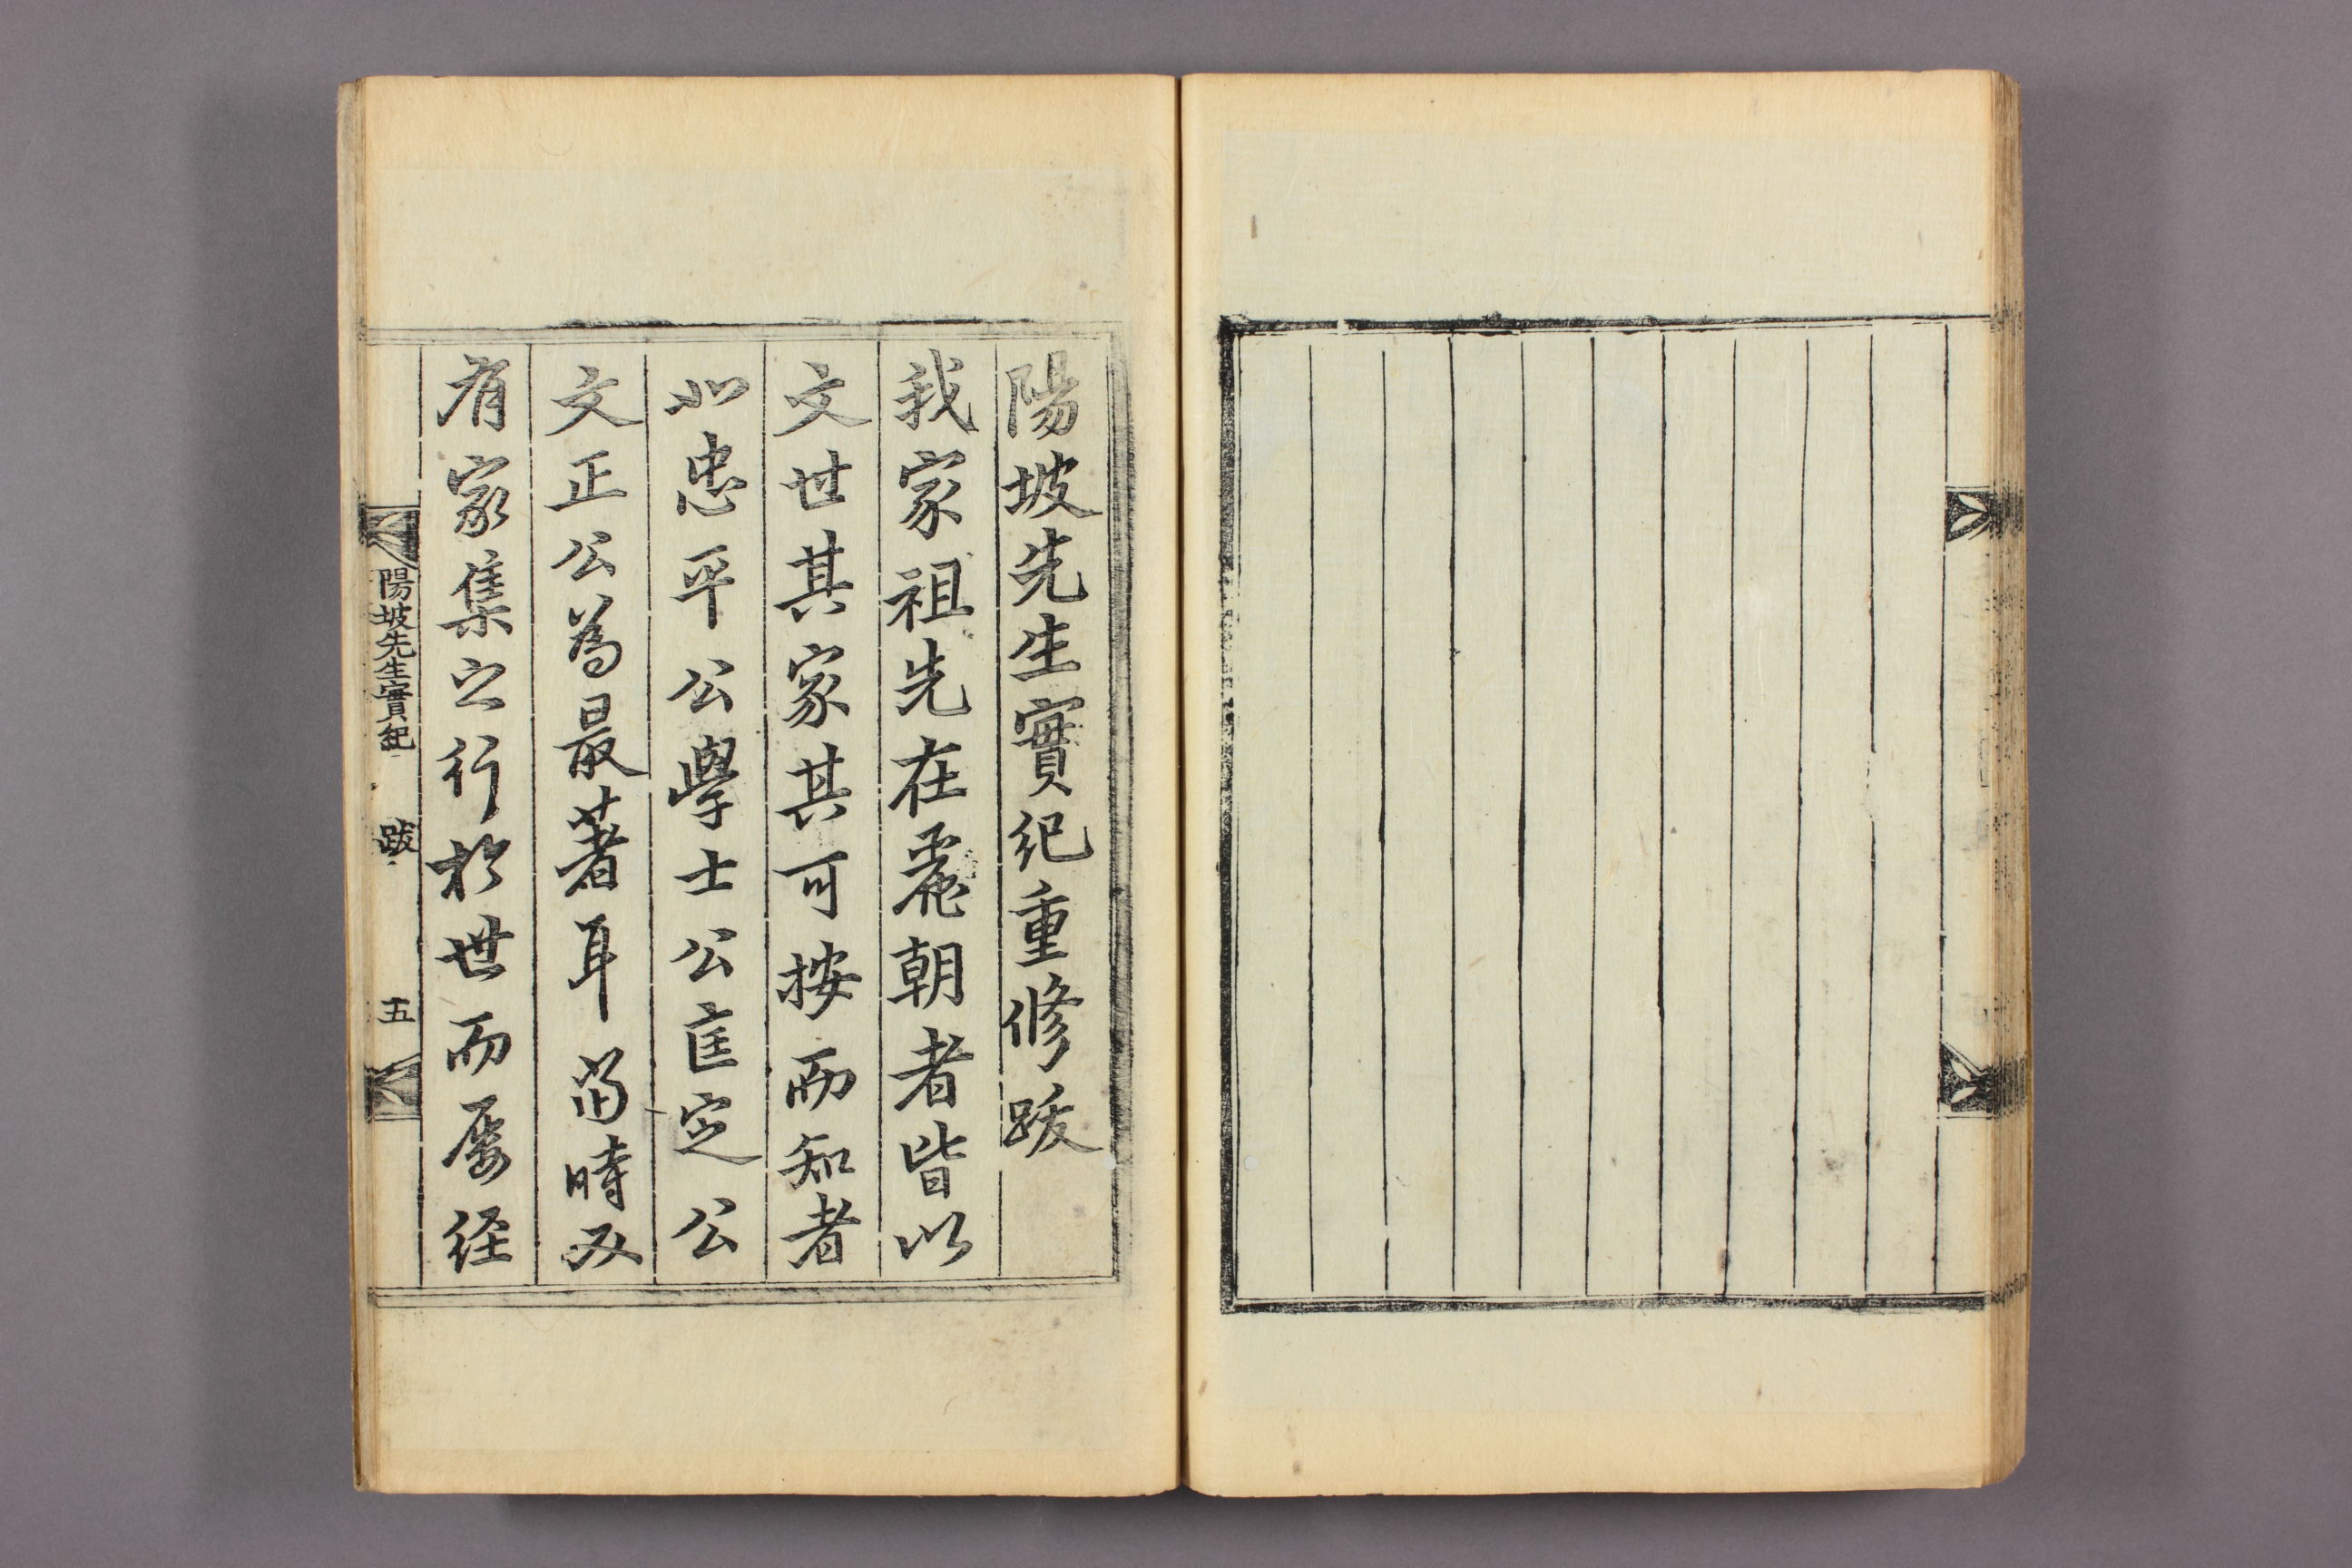 陽坡先生實紀重修跋
我家祖先在麗朝者皆以
文世其家其可按而知者
如忠平公學士公匡定公
文正公為最著耳當時及
有家集之行於世而屡経
陽坡先生實紀 跋 五